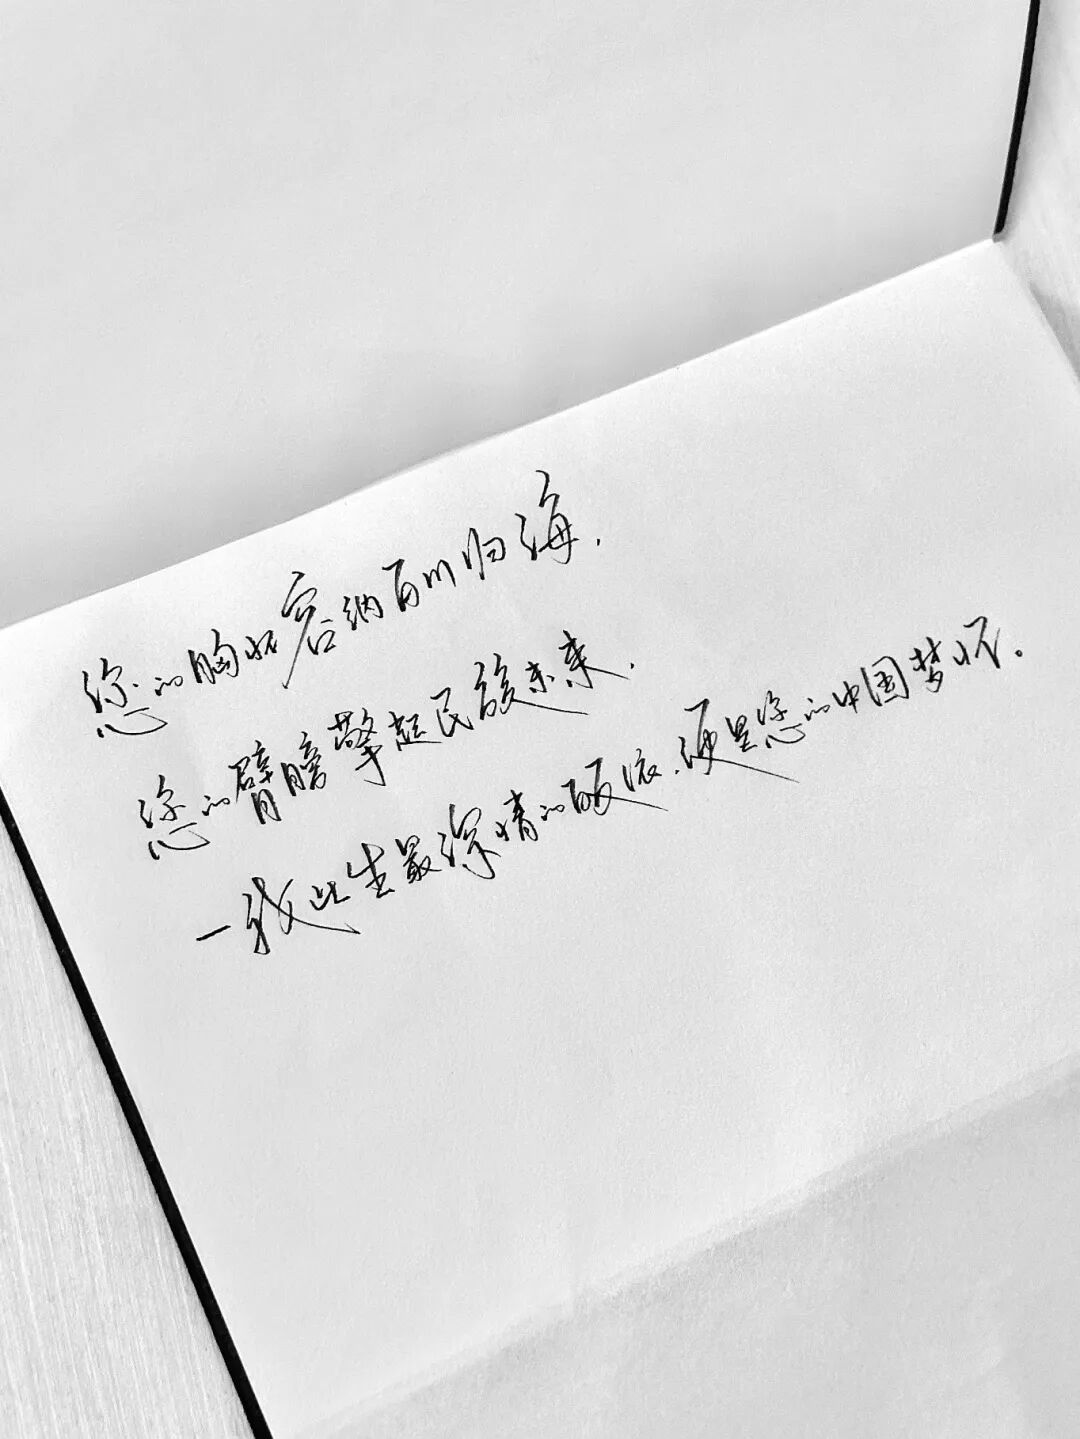 您的胸怀容纳百川归海，
您的臂膀擎起民族未来，
一我此生最深情的皈依，便是您的中国梦怀。